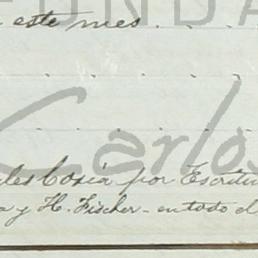 este mes.
FUNDA
Carlos
les Cosia por Escritu
a y H. Fischer - en todo el